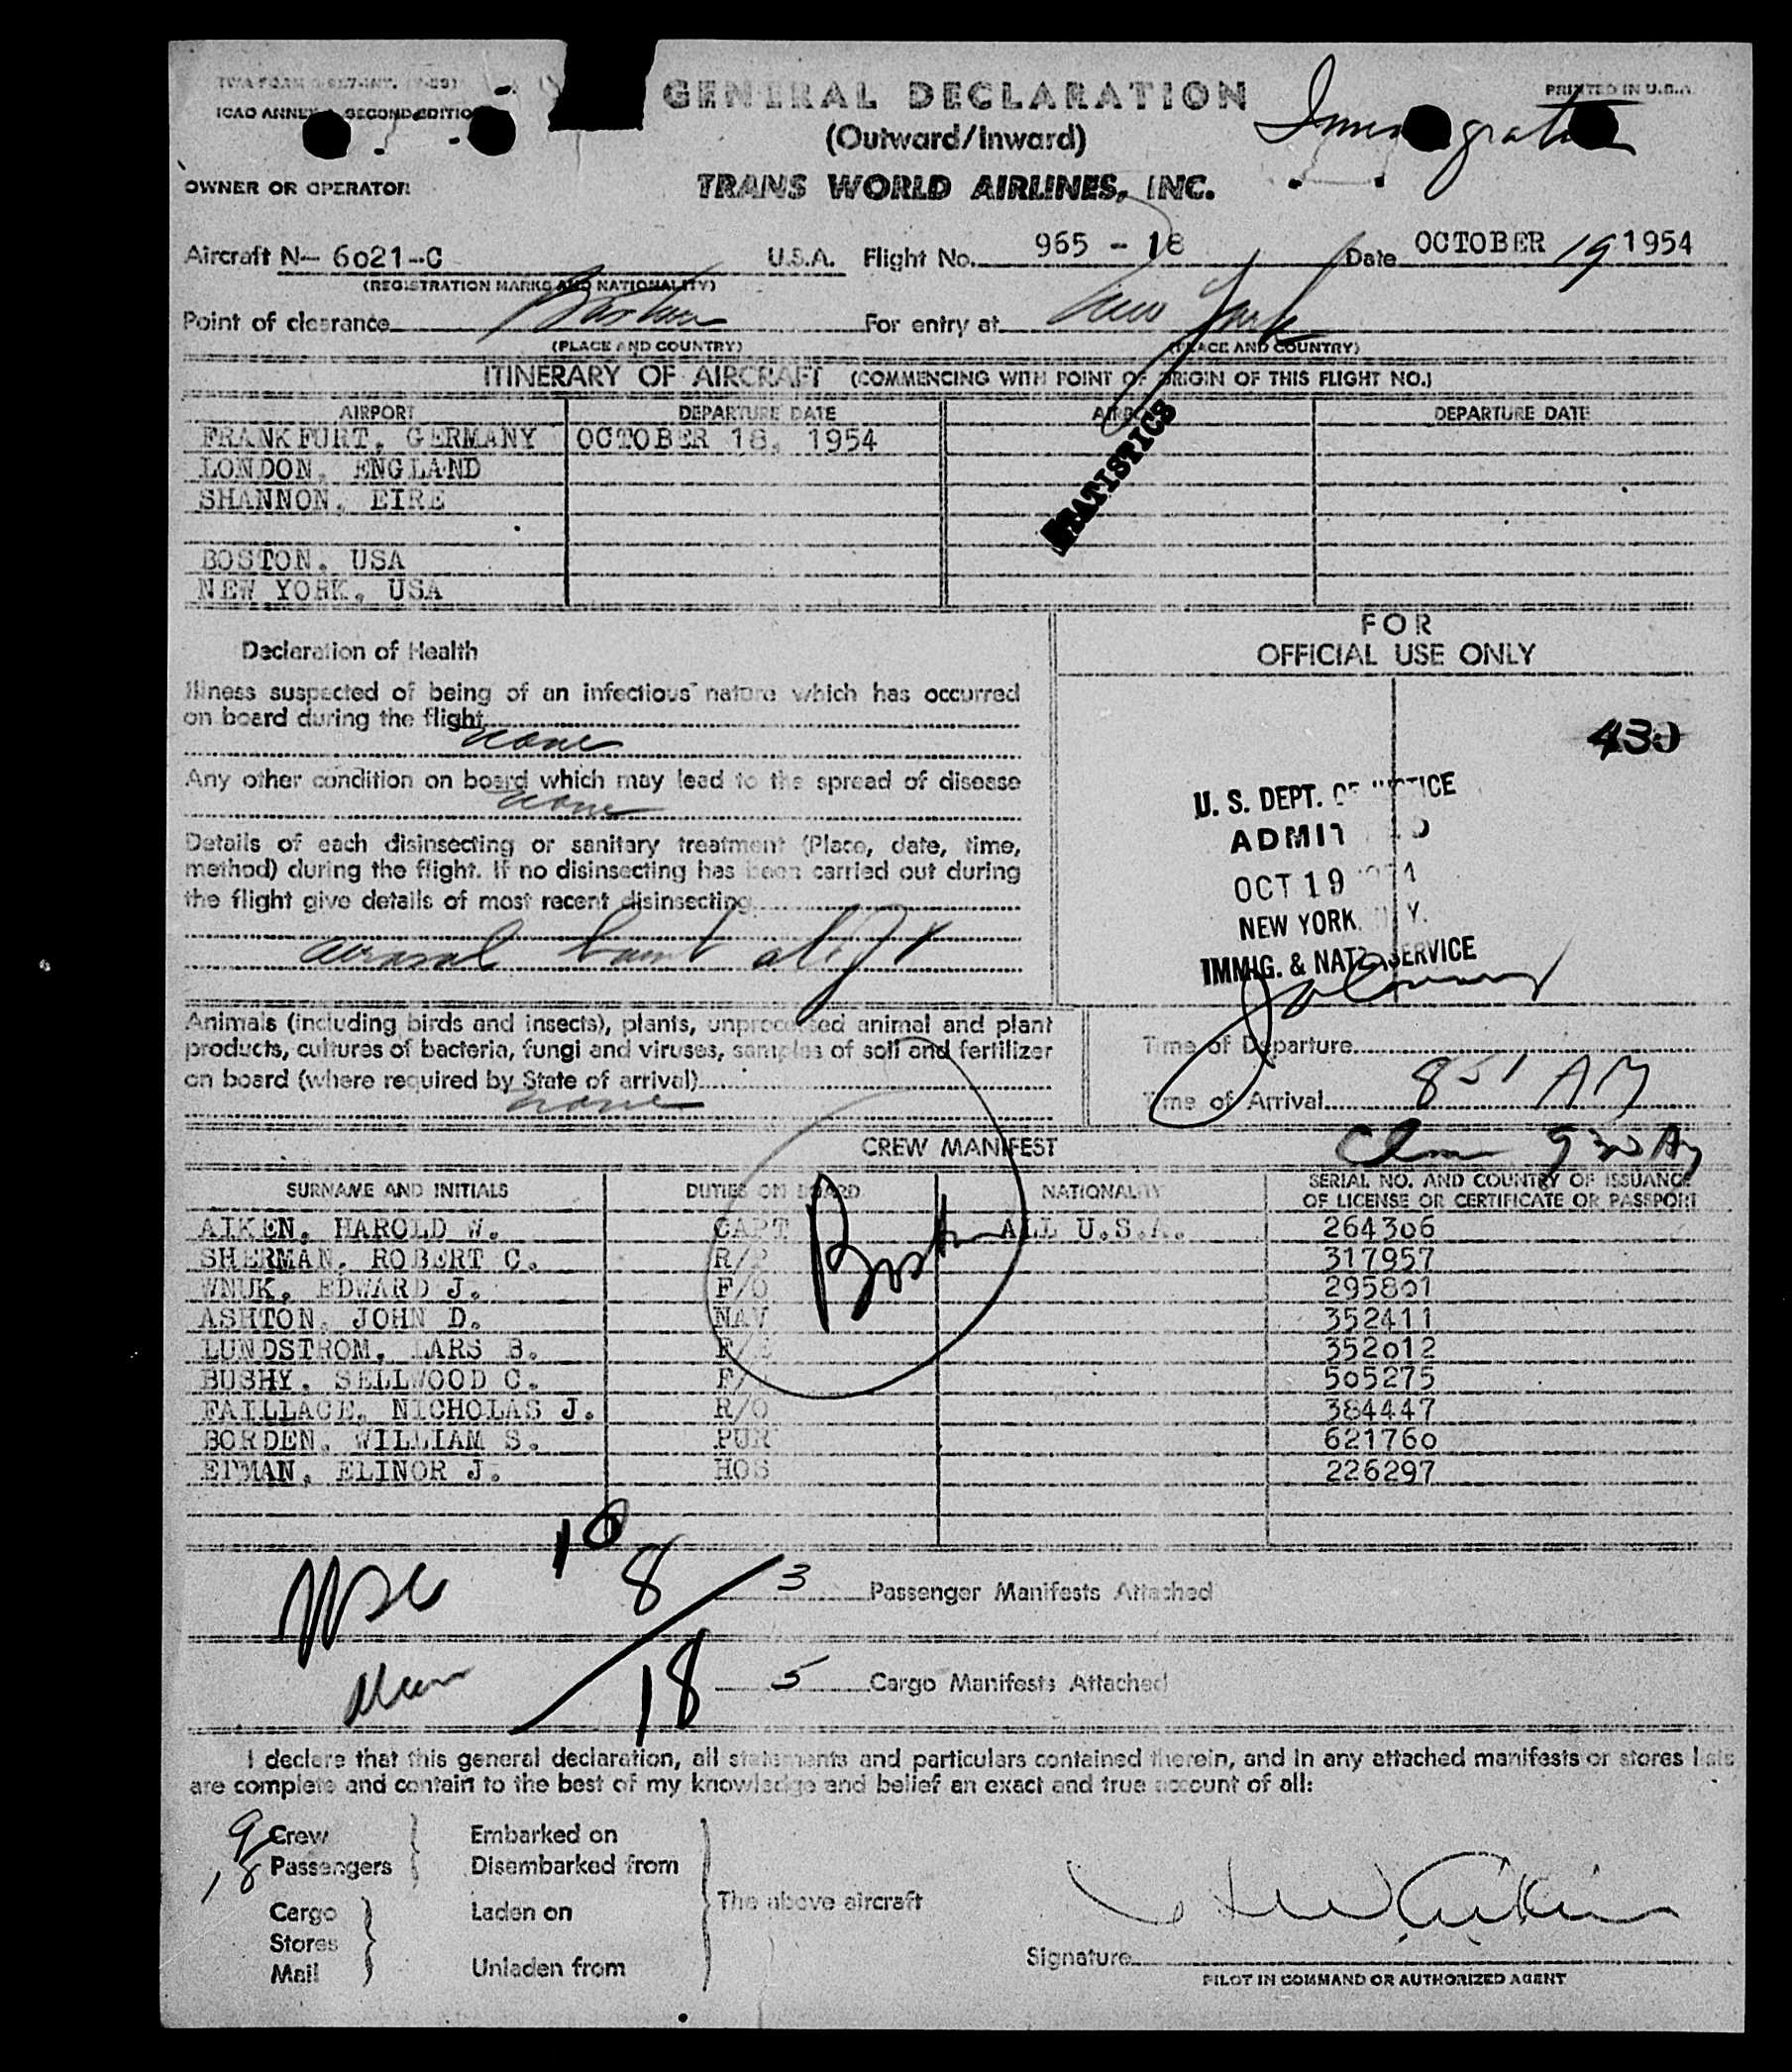 ICAO ANNEX SECOND EDITION
PRINTED IN U.S.A.
GENERAL DECLARATION
(Outward/Inward)
OWNER OR OPERATOR
TRANS WORLD AIRLINES, INC.
Aircraft N— 6021-C U.S.A. Flight No. 965 - 18 Date OCTOBER 19 1954
(REGISTRATION MARKS AND NATIONALITY)
Point of clearance Boston For entry at New York
(PLACE AND COUNTRY) (PLACE AND COUNTRY)
ITINERARY OF AIRCRAFT (COMMENCING WITH POINT OF ORIGIN OF THIS FLIGHT NO.)
AIRPORT DEPARTURE DATE AIRPORT DEPARTURE DATE
FRANKFURT, GERMANY OCTOBER 18, 1954
LONDON, ENGLAND
SHANNON, EIRE
STATISTICS
BOSTON, USA
NEW YORK, USA
FOR
OFFICIAL USE ONLY
Declaration of Health
Illness suspected of being of an infectious nature which has occurred
on board during the flight
none
Any other condition on board which may lead to the spread of disease
none
Details of each disinsecting or sanitary treatment (Place, date, time,
method) during the flight. If no disinsecting has been carried out during
the flight give details of most recent disinsecting
430
U. S. DEPT. OF JUSTICE
ADMITTED
OCT 19 1954
NEW YORK, N. Y.
IMMIG. & NATZ. SERVICE
Animals (including birds and insects), plants, unprocessed animal and plant
products, cultures of bacteria, fungi and viruses, samples of soil and fertilizer
on board (where required by State of arrival)
none
Time of Departure
Time of Arrival 851 AM
930 AM
CREW MANIFEST
SURNAME AND INITIALS DUTIES ON BOARD NATIONALITY SERIAL NO. AND COUNTRY OF ISSUANCE
OF LICENSE OR CERTIFICATE OR PASSPORT
AIKEN, HAROLD W. CAPT ALL U.S.A. 264306
SHERMAN, ROBERT C. 317957
WNUK, EDWARD J. F/O 295801
ASHTON, JOHN D. NAV 352411
LUNDSTROM, LARS B. F/E 352012
BUSHY, SELLWOOD C. 505275
FAILLACE, NICHOLAS J. R/O 384447
BORDEN, WILLIAM S. PUR 621760
EITMAN, ELINOR J. HOS 226297
Bost
10
8
3 Passenger Manifests Attached
18
5 Cargo Manifests Attached
I declare that this general declaration, all statements and particulars contained therein, and in any attached manifests or stores lists
are complete and contain to the best of my knowledge and belief an exact and true account of all:
9 Crew Embarked on
18 Passengers Disembarked from
Cargo Laden on The above aircraft
Stores
Mail Unladen from
Signature H W Aiken
PILOT IN COMMAND OR AUTHORIZED AGENT